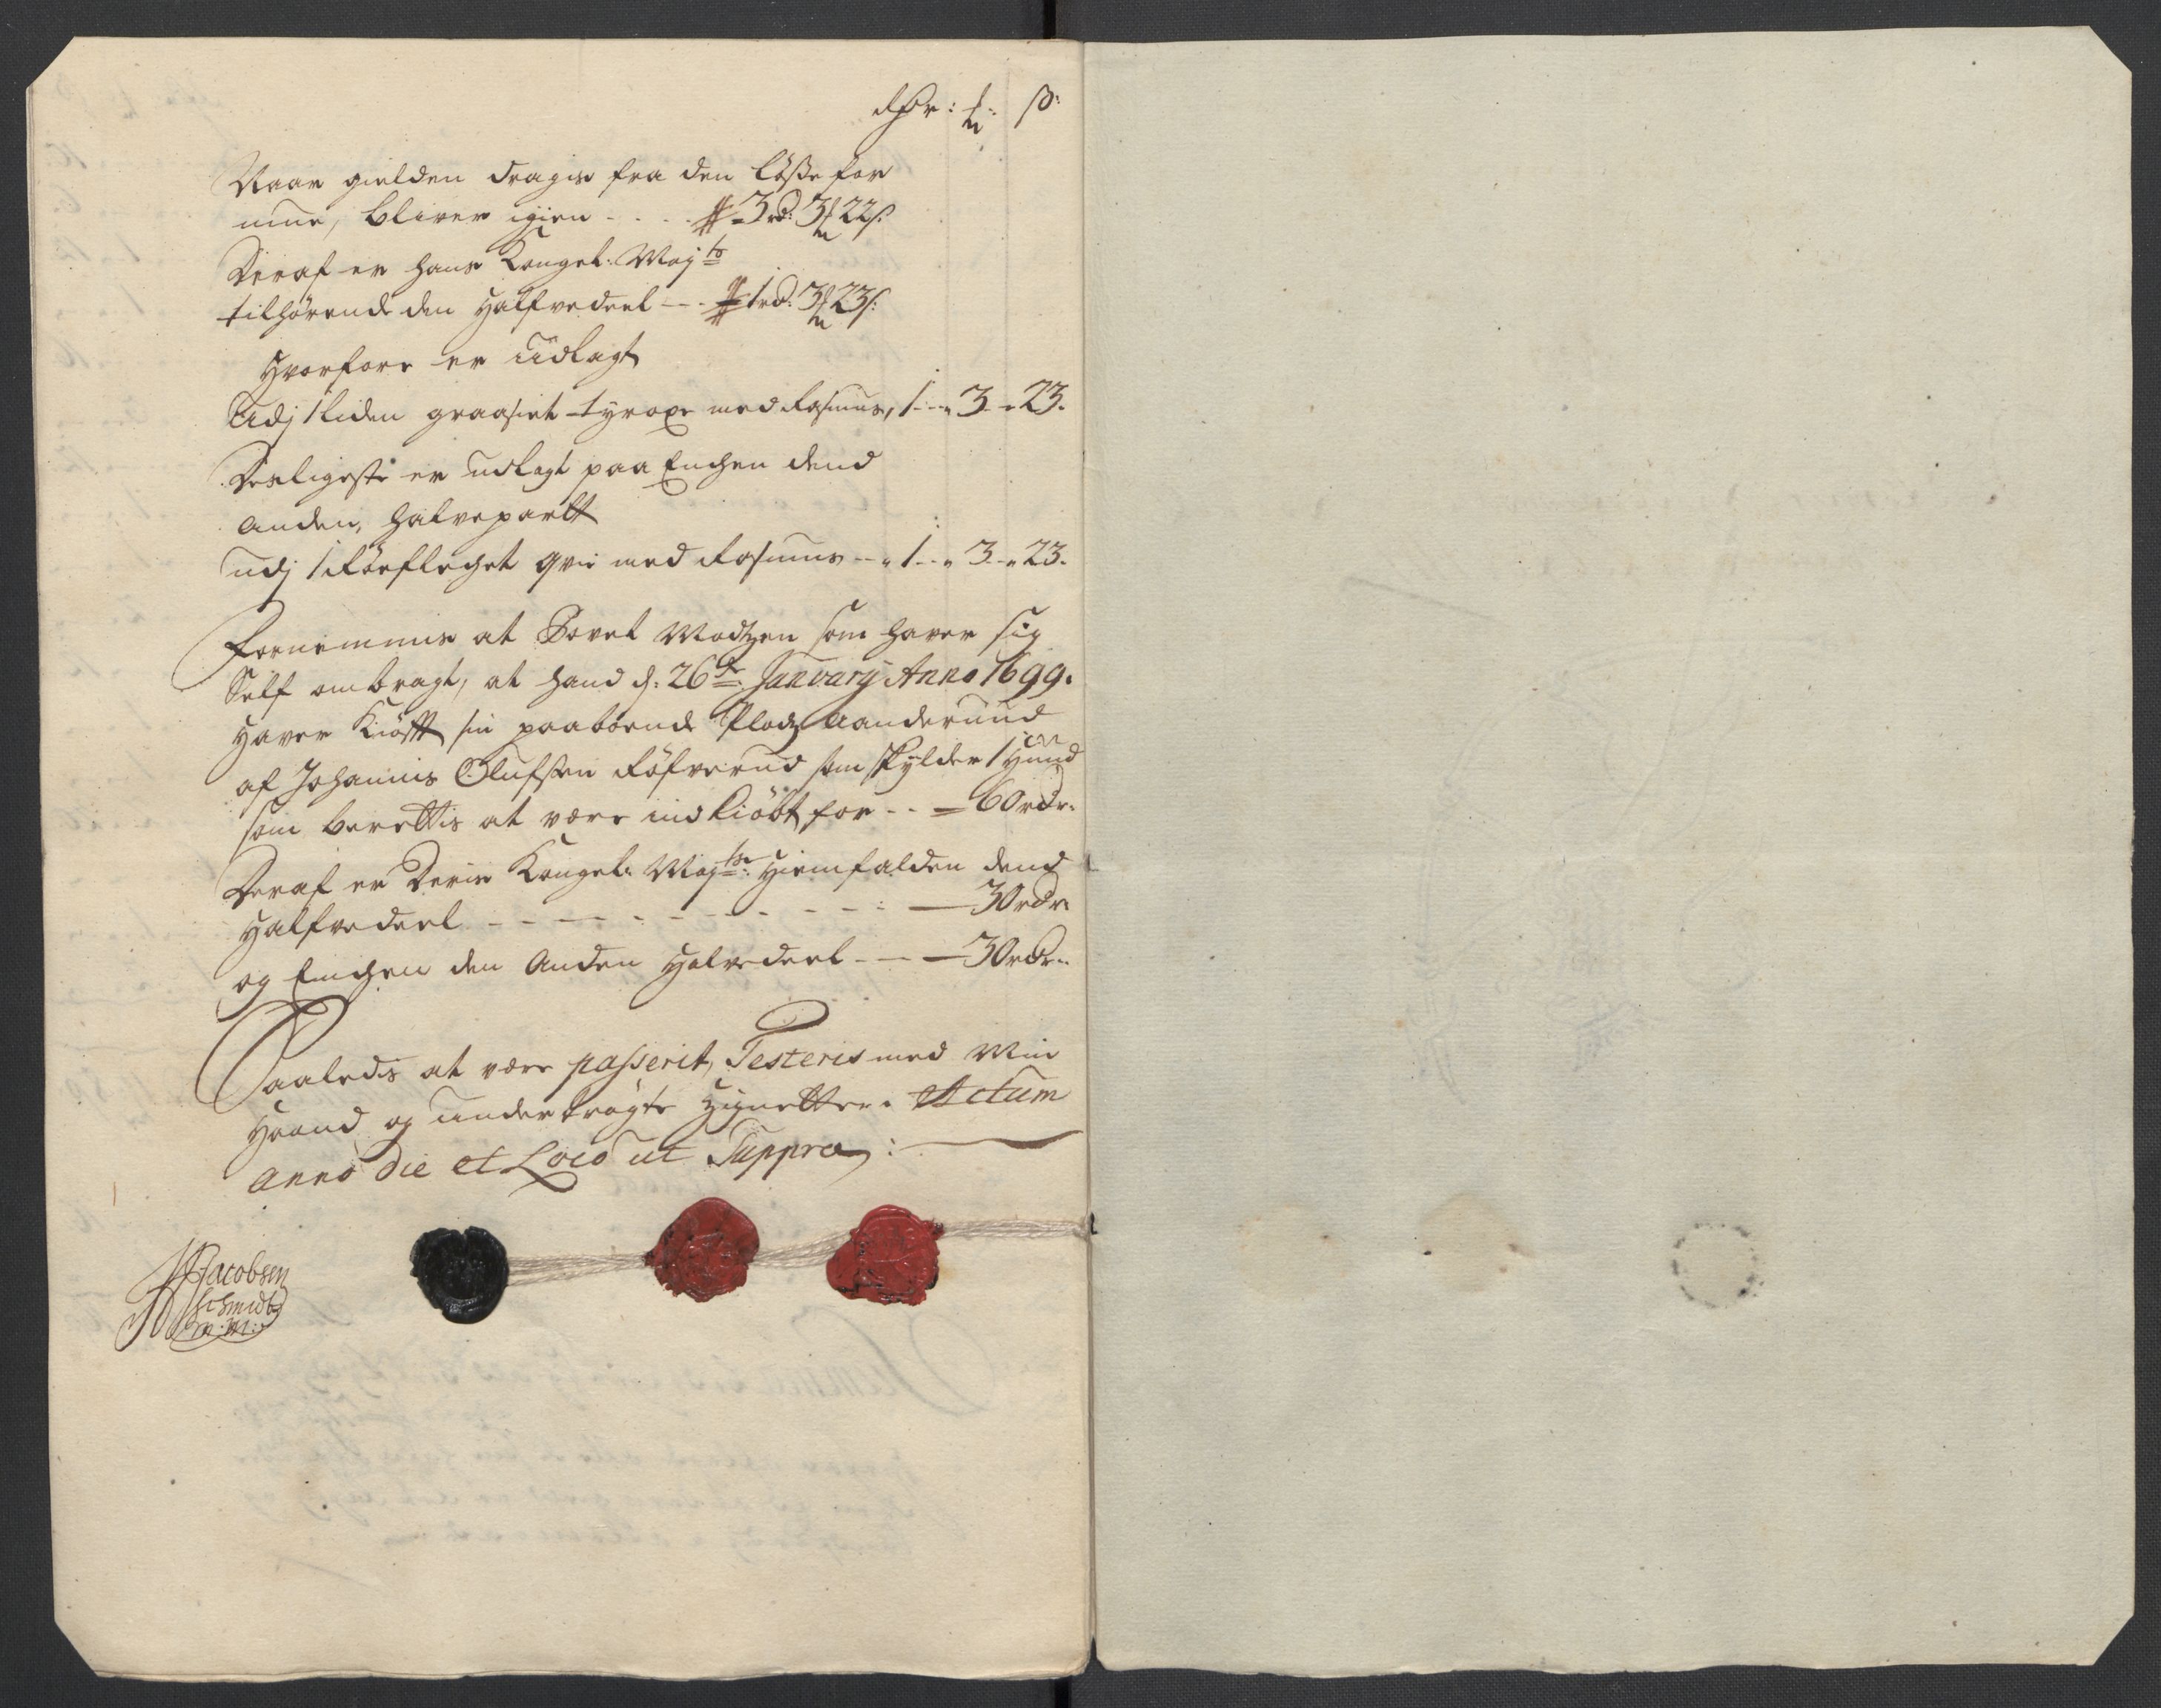 rdr: ƒ: ß:
Naar gielden dragis fra den løsse for
mue, bliver igien - - - 3 rd: 3 ƒ 22 ß:
Deraf er hans Kongel: Majts
tilhørende den Halfvedeel - - 1 rd: 3 ƒ 23 ß:
Hvorfore er Udlagt
Udj 1 liden graasiet tyroxe med 1 - - 3 - 23.
Desligeste er udlagt paa Enchen dend
anden, halvepartt
udj 1 qvie med - - 1 - - 3 - - 23.
Fornemmis at Povel Madtzen som haver sig
Self ombragt, at hand d: 26de January Anno 1699.
Haver Kiøfft sin paaboende Pladtz
af Johannis Olufsen som skylder 1 Hund
som berettis at være indkiøbt for - - 60 rdr.
Deraf er Deris Kongel: Majts: Hiemfalden dend
Halfvedeel - - - - - - - - - 30 rdr
og Enchen den Anden Halvedeel - - - 30 rdr.
Saaledis at være passerit, Testeris med Min
Haand og undertrögte Zignetter. Actum
anno die et Loco ut Suppra:
Jacobsen
Schmidt
m.m: